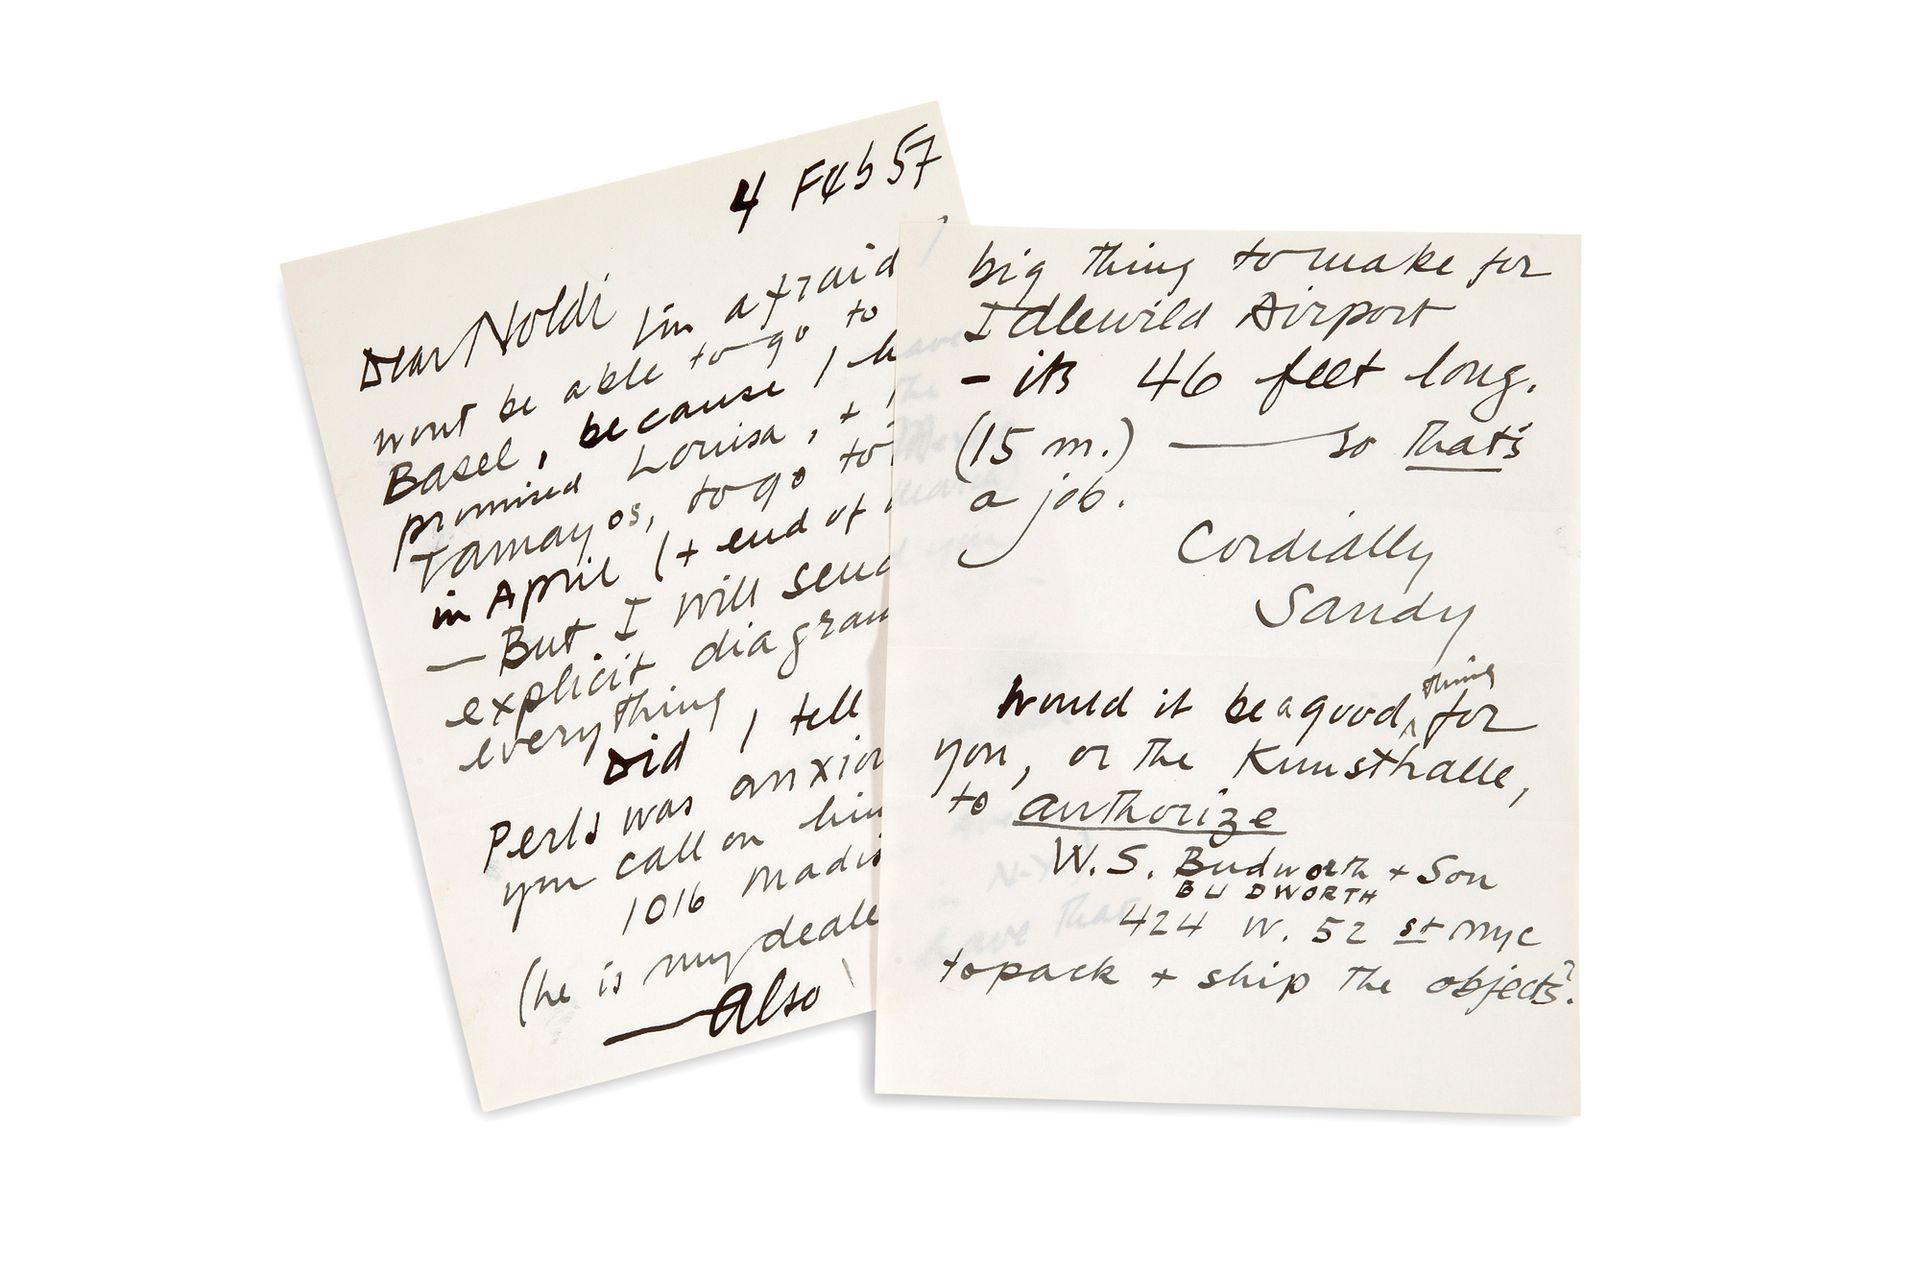 4 Feb 57
Dear Noldi I'm afraid I
wont be able to go to
Basel, because I have
promised Louisa, + the
Tamayos, to go to
in April (+ end of March)
— But I will send you
explicit diagram
everything
Did I tell
Perls was anxiou
you call on him
1016 Madis
(he is my deale
— Also I have that
big thing to make for
Idlewild Airport
- its 46 feet long.
(15 m.) — so that's
a job.
Cordially
Sandy
Would it be a good thing for
you, or the Kunsthalle,
to authorize
W. S. Budworth + Son
BUDWORTH
424 W. 52 st NYC
to pack + ship the objects?.